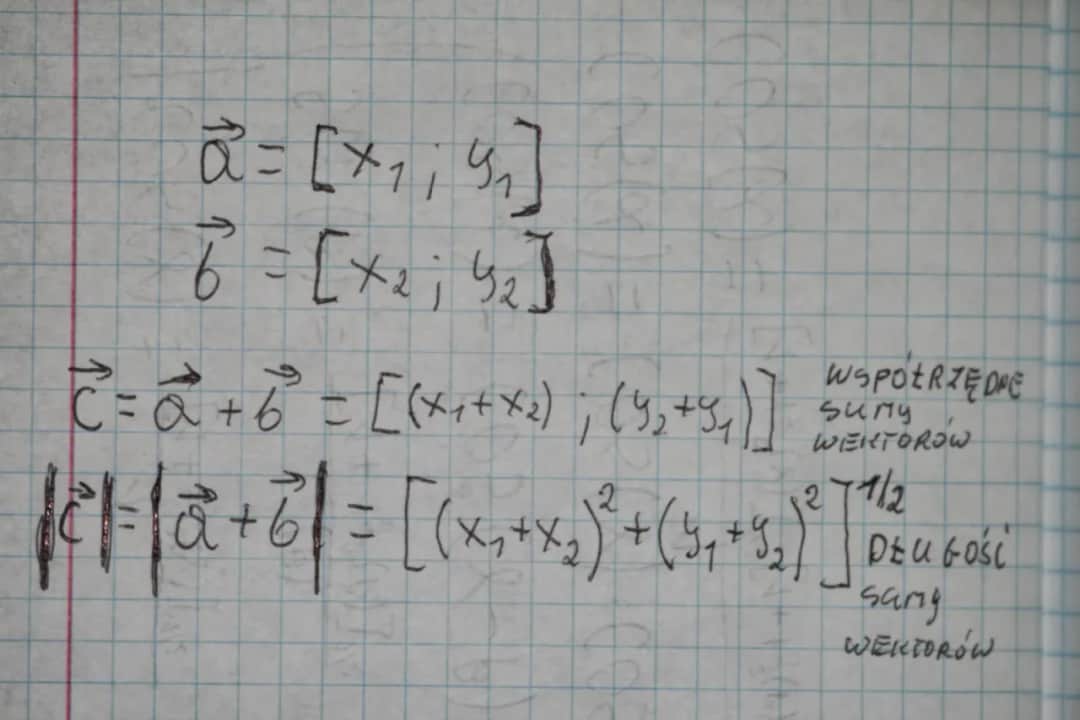 a⃗ = [x₁ ; y₁]
b⃗ = [x₂ ; y₂]
c⃗ = a⃗ + b⃗ = [(x₁+x₂) ; (y₂+y₁)]
WSPÓŁRZĘDNE
SUMY
WEKTORÓW
|c⃗| = |a⃗ + b⃗| = [(x₁+x₂)² + (y₁+y₂)²]^1/2
DŁUGOŚĆ
SUMY
WEKTORÓW